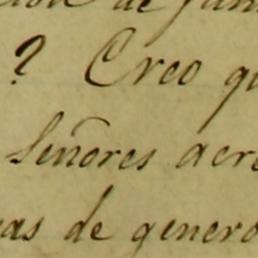 de
? Creo qu
Señores acre
as de genero